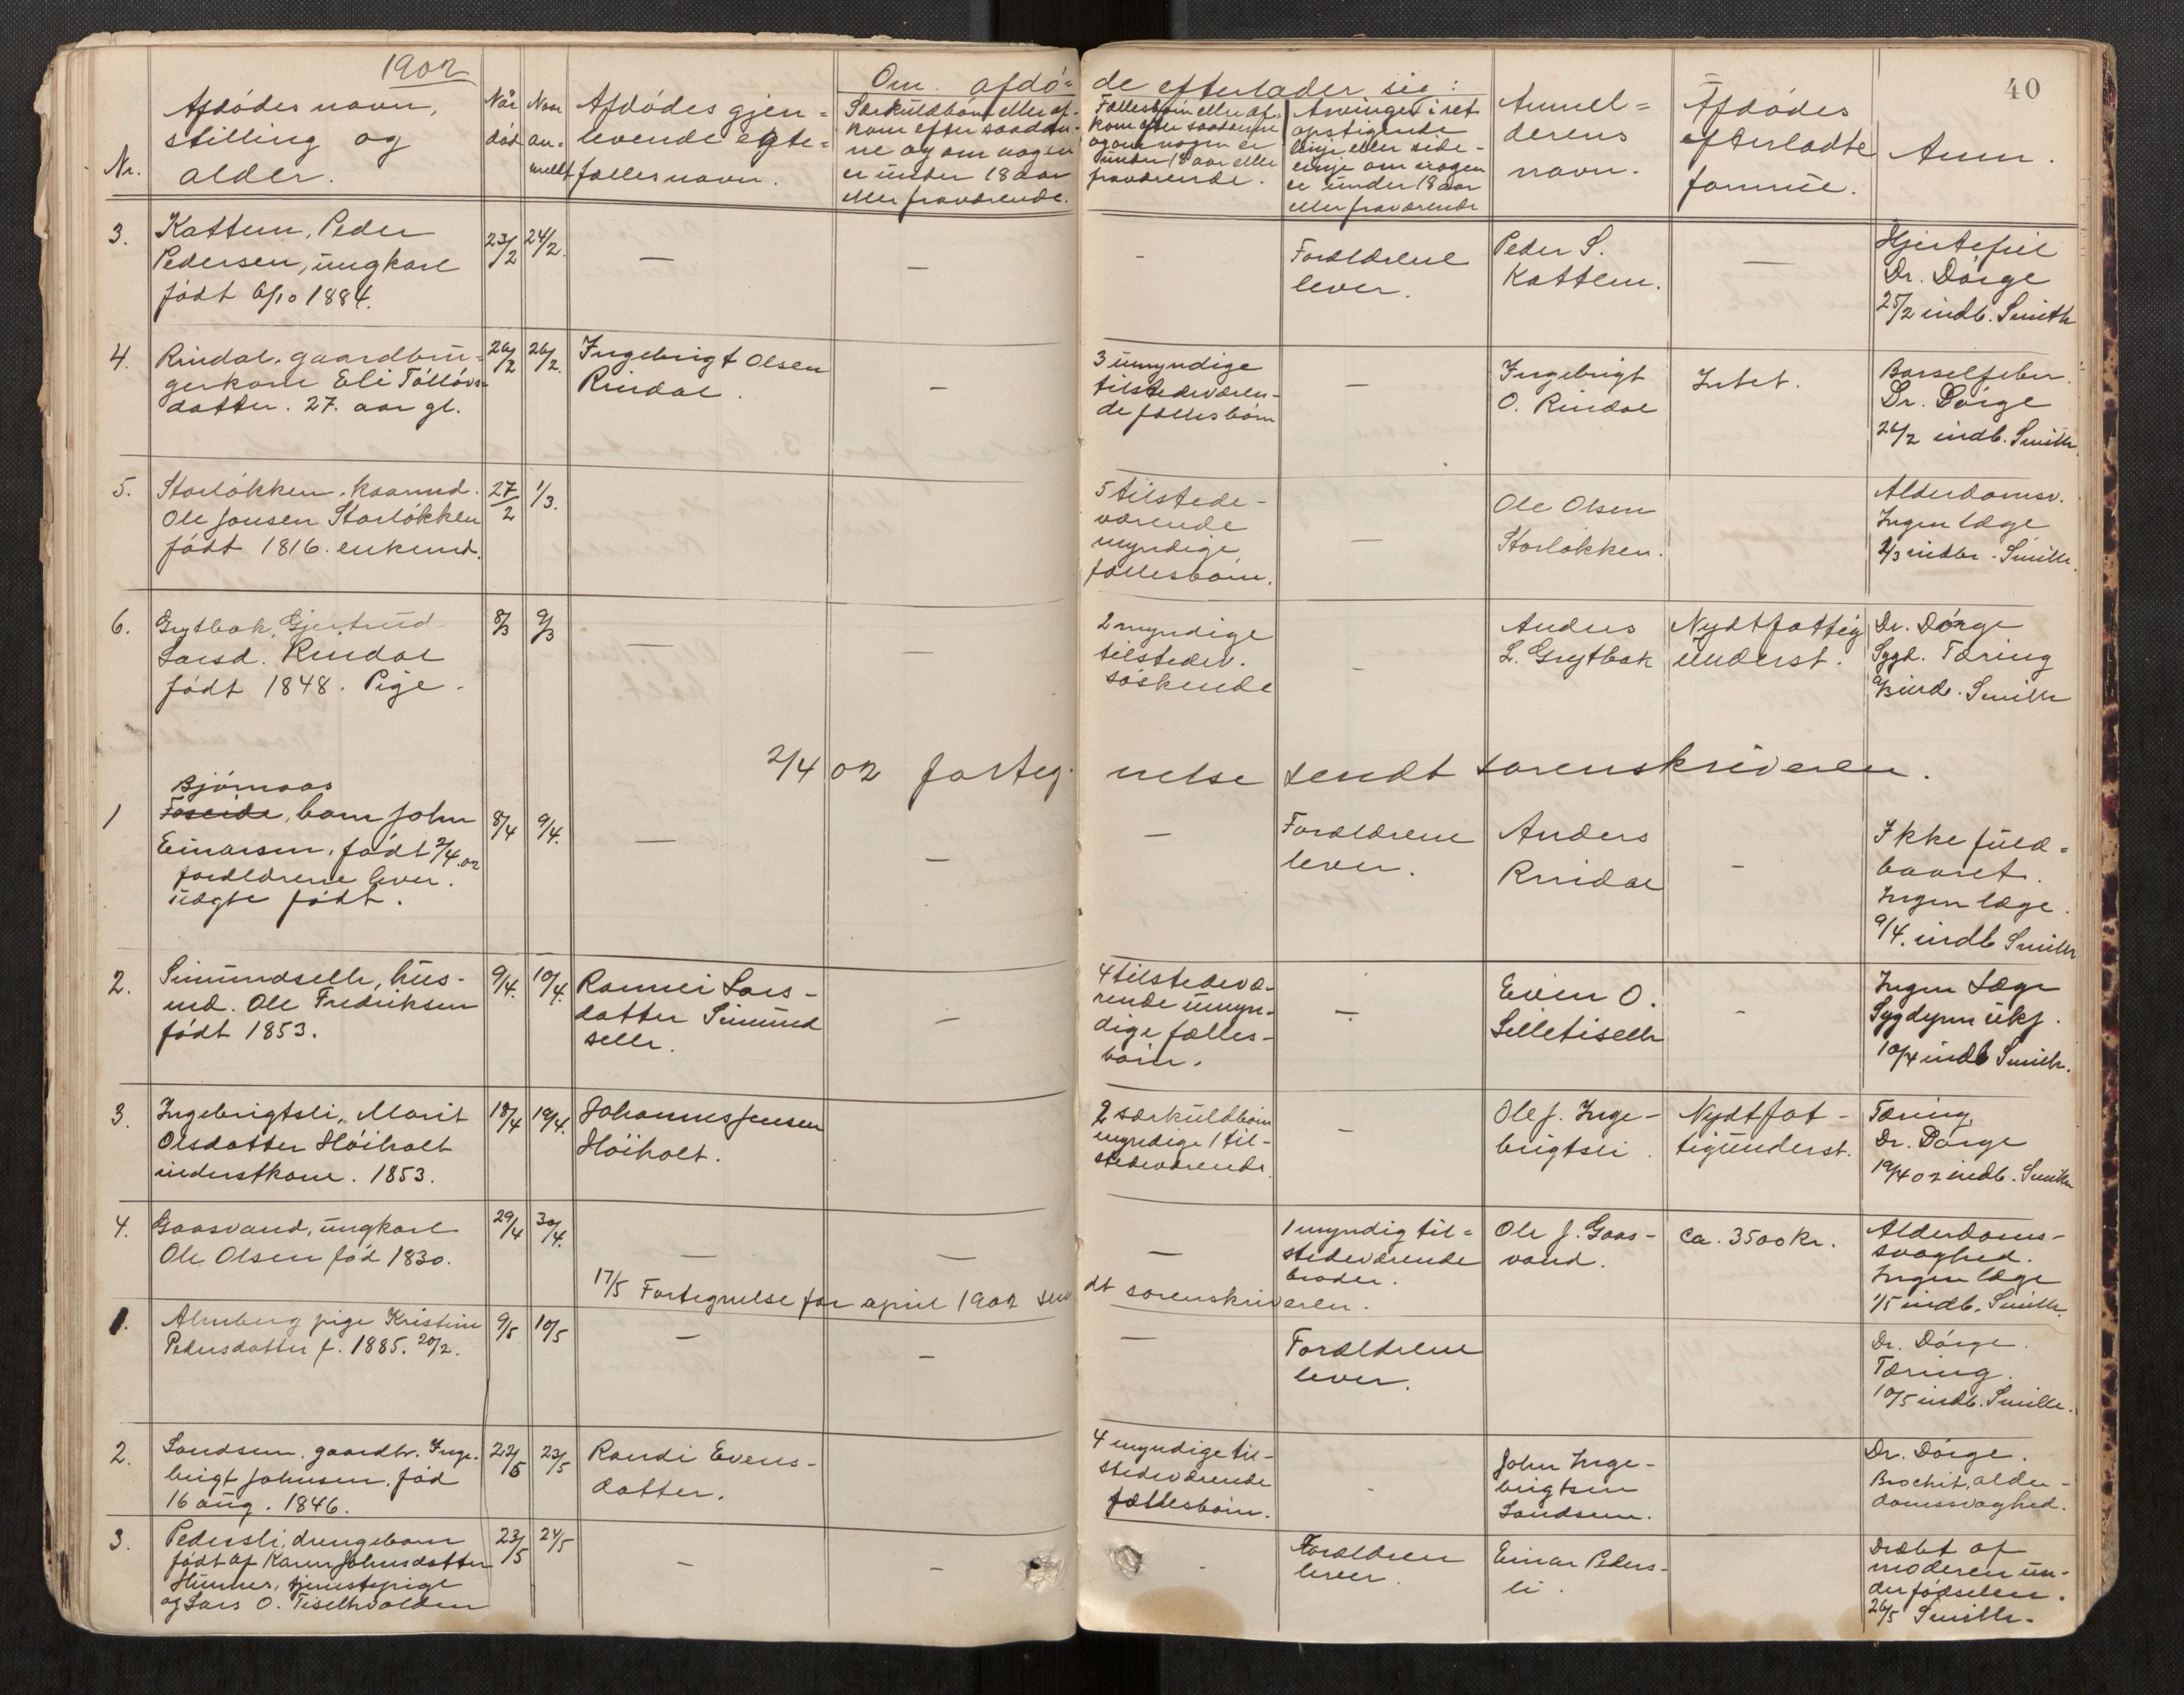 1902
40
Om afdø-
de efterlader sig:
Nr.
Afdødes navn,
stilling og
alder.
Når
død
Naar
an-
meldt
Afdødes gjen-
levende egte-
fælles navn.
Særkuldbörn eller af-
kom efter saadan-
ne og om nogen
er under 18 aar
eller fraværende.
Fællesbörn eller af-
kom efter saadanne
og om nogen er
under 18 aar eller
fraværende.
Arvinger i ret
opstigende
linje eller side-
linje om nogen
er under 18 aar
eller fraværende
Anmel-
derens
navn.
Afdødes
efterladte
formue.
Anm.
3.
Kattem, Peder
Pedersen, ungkarl
född 6/10 1884.
23/2
24/2.
—
—
-
Forældrene
lever.
Peder S.
Kattem.
—
Hjertefeil
Dr. Dörge
25/2 indb. Smith
4.
Rindal, gaardbru-
gerkone Eli Töllövs-
datter. 27. aar gl.
26/2
26/2.
Ingebrigt Olsen
Rindal.
—
3 umyndige
tilstedeværen-
de fællesbörn
—
Ingebrigt
O. Rindal
Intet.
Barselfeber.
Dr. Dörge
26/2 indb. Smith.
5.
Storløkken, kaarmd.
Ole Jonsen Storløkken
født 1816. enkemd.
27/2
1/3.
5 tilstede-
værende
myndige
fællesbörn.
—
Ole Olsen
Storløkken.
Alderdomsv.
Ingen læge
2/3 indber. Smith.
6.
Grytbak, Gjertrud
Larsd. Rindal
født 1848. Pige.
8/3
9/3
—
—
2 myndige
tilstedev.
söskende
-
Anders
L. Grytbak
Nydt fattig
underst.
Dr. Dörge
Sygd. Tæring
9/3 indb. Smith
2/4 02 forteg-
nelse sendt sorenskriveren.
1
Bjørnaas
Foseide, barn John
Einarsen, født 2/4 02
forældrene lever.
uægte født.
8/4
9/4.
—
—
—
Forældrene
lever.
Anders
Rindal
-
Ikke fuld-
baaret.
Ingen læge.
9/4. indb Smith
2.
Simundsellr, hus-
md. Ole Fredriksen
født 1853.
9/4.
10/4.
Rannei Lars-
datter Simund
sellr.
—
4 tilstedevæ-
rende umyn-
dige fælles-
börn.
—
Even O.
Silletisellr
-
Ingen Læge
Sygdymn ukj.
10/4 indb Smith.
3.
Ingebrigtsli, Marit
Olsdatter Höiholt
inderstkone. 1853.
18/4
19/4.
Johannes Jensen
Höiholt.
2 særkuldbörn
myndige 1 til-
stedeværende.
—
Ole J. Inge-
brigtsli.
Nydt fat-
tigunderst.
Tæring,
Dr. Dörge
19/4 02 indb. Smith
4.
Gaasvand, ungkarl
Ole Olsen fød 1830.
29/4
30/4.
—
—
—
1 myndig til-
stedeværende
broder.
Ole J. Gaas-
vand.
ca. 3500 kr.
Alderdoms-
svaghed.
Ingen læge
1/5 indb. Smith.
17/5 Fortegnelse for april 1902 sen
dt sorenskriveren.
1.
Almberg pige Kristine
Pedersdatter f. 1885. 20/2.
9/5
10/5
—
—
—
Forældrene
lever.
Dr. Dörge.
Tæring.
10/5 indb. Smith.
2.
Landsem, gaardbr. Inge-
brigt Johnsen, fød
16 aug. 1846.
22/5
23/5
Randi Evens-
datter.
4 myndige til-
stedeværende
fællesbörn.
-
John Inge-
brigtsen
Landsem.
Dr. Dörge.
Brochit, alder-
domssvaghed.
3.
Pedersli, drengebarn
født af Karen Johnsdatter
tjenestepige
og Lars O. Tisellrvolden
23/5
24/5
—
—
-
Forældrene
lever.
Einar Peders-
li.
Dræbt af
moderen un-
der fødselen.
26/5 Smith.